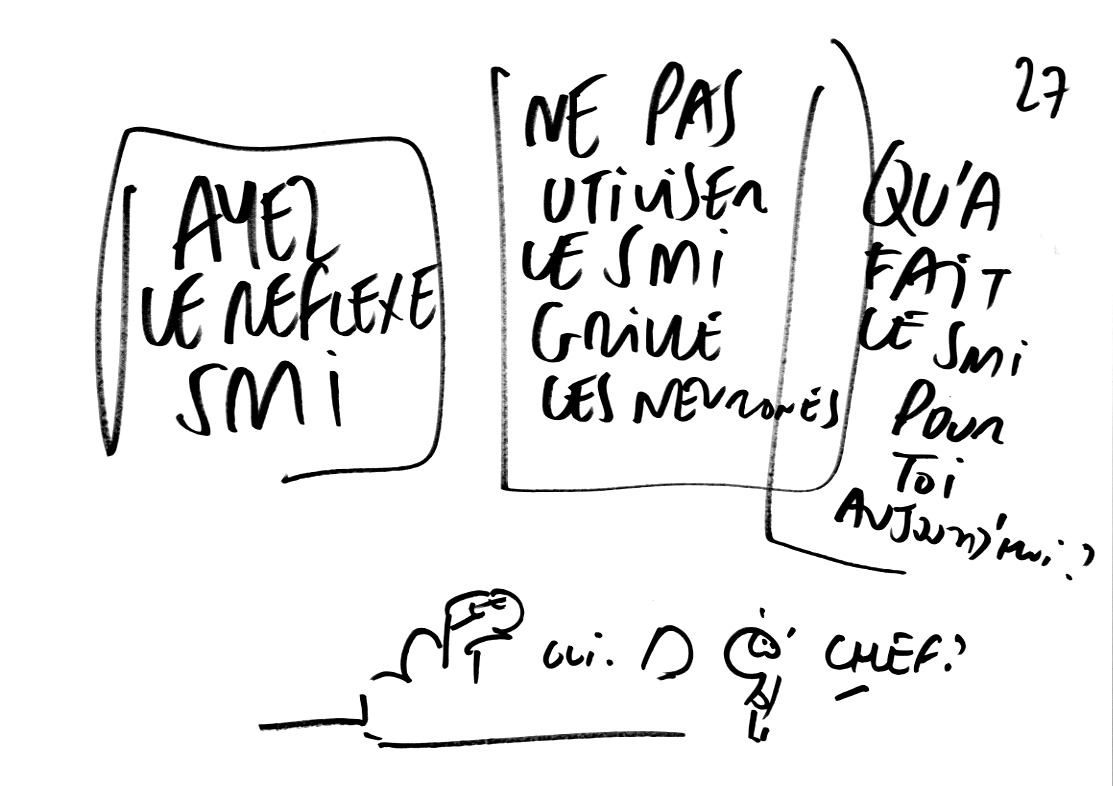 27
AYEZ
LE REFLEXE
SMi
NE PAS
UTiLiSER
LE SMi
GRiLLE
LES NEURONES
QU'A
FAiT
LE SMi
POUR
TOi
AUJOURD'HUi?
OUi.
CHEF?